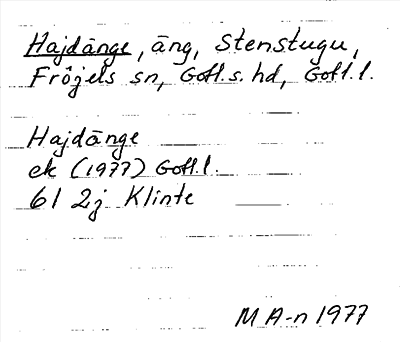 Hajdänge, äng, Stenstugu,
Fröjels sn, Gotl.s. hd, Gotl.l.
Hajdänge
ek (1977) Gotl.l.
6I 2j Klinte
M A-n 1977